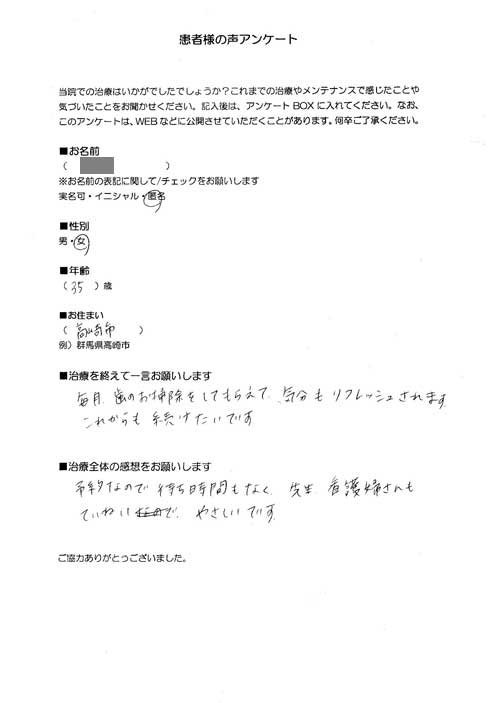 患者様の声アンケート
当院での治療はいかがでしたでしょうか？これまでの治療やメンテナンスで感じたことや
気づいたことをお聞かせください。記入後は、アンケート BOX に入れてください。なお、
このアンケートは、WEB などに公開させていただくことがあります。何卒ご了承ください。
■お名前
（　　　　　）
※お名前の表記に関して/チェックをお願いします
実名可・イニシャル・匿名
■性別
男・女
■年齢
（ 35 ）歳
■お住まい
（ 高崎市 ）
例）群馬県高崎市
■治療を終えて一言お願いします
毎月、歯のお掃除をしてもらえて、気分もリフレッシュされます。
これからも続けたいです
■治療全体の感想をお願いします
予約なので待ち時間もなく、先生、看護婦さんも
ていねいで、やさしいです。
ご協力ありがとっございました。